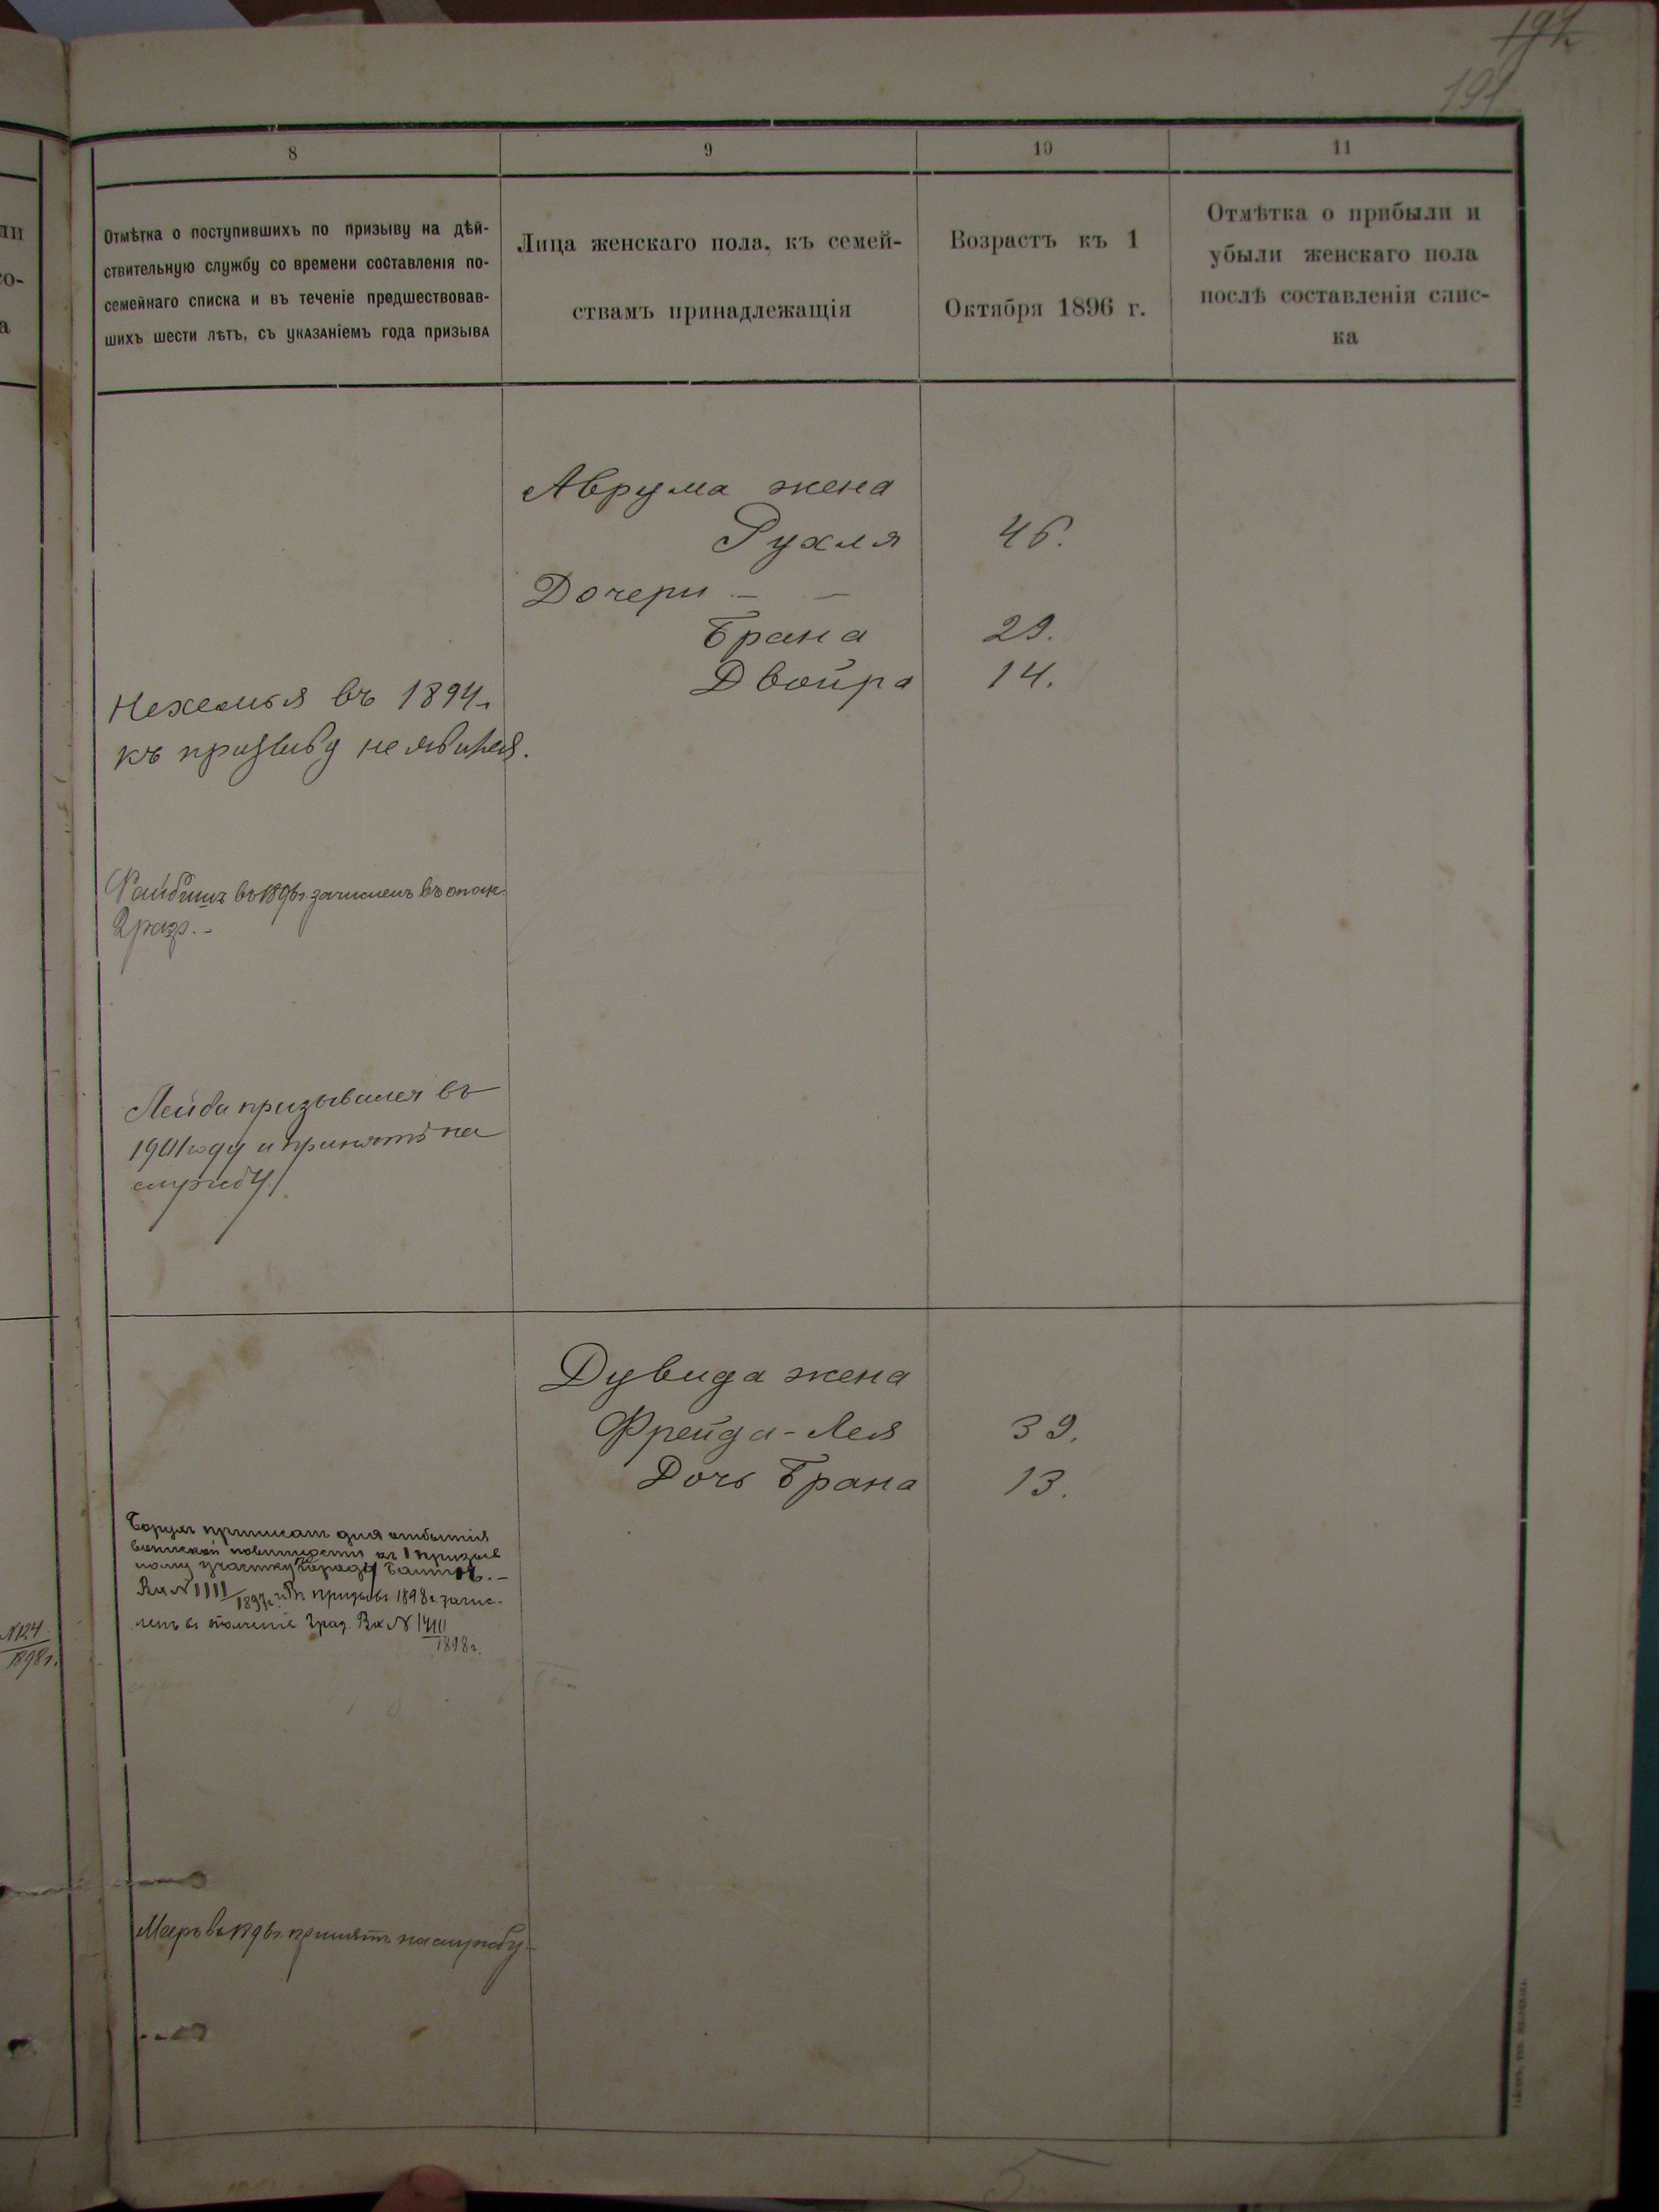 194
191
8
9
10
11
Отмѣтка о поступившихъ по призыву на дѣй-
ствительную службу со времени составленія по-
семейнаго списка и въ теченіе предшествовав-
шихъ шести лѣтъ, съ указаніемъ года призыва
Лица женскаго пола, къ семей-
ствамъ принадлежащія
Возрастъ къ 1
Октября 1896 г.
Отмѣтка о прибыли и
убыли женскаго пола
послѣ составленія спис-
ка
Аврума жена
Рухля 46.
Дочери - -
Брана 29.
Двойра 14.
Нехемья въ 1894 г.
къ призыву не явился.
въ 1896 г. зачисленъ въ опол
2 разр. -
Лейба призывался въ
1901 году и принятъ на
службу.
Дувида жена
Фрейда-Лея 39.
Дочь Брана 13.
Борухъ приписан для отбытія
воинской повинности къ 1 призыв
ному участку города Балты. -
Вх № 1111/1897 г. Въ призывъ 1898 г. зачис-
ленъ въ ополченіе 2 раз. Вх № 1410
1898 г.
№ 124
1898 г.
Мееръ въ 1896 г. принятъ на службу